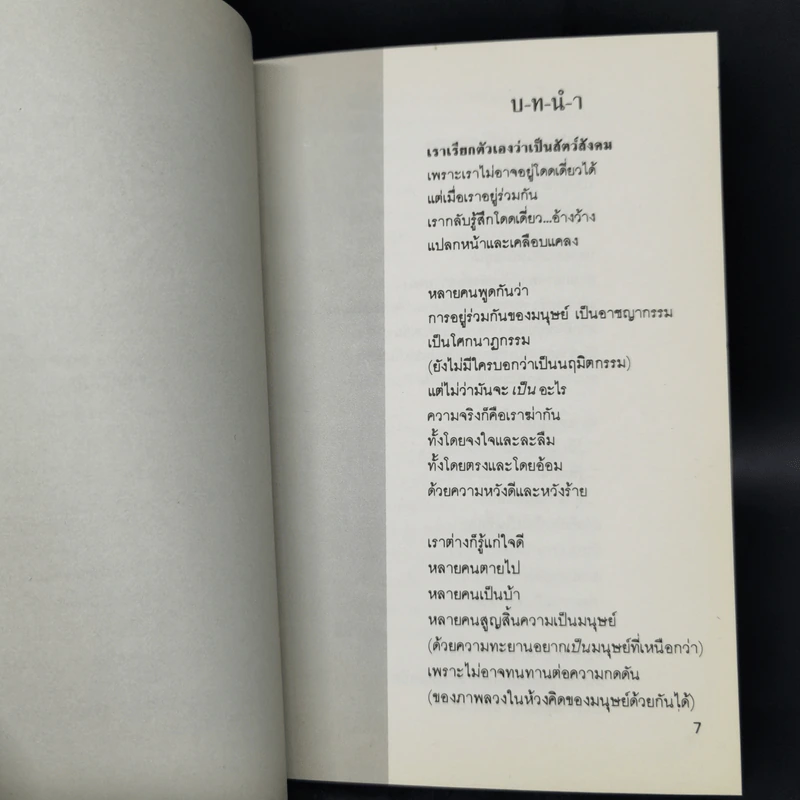 บ-ท-นำ-า
เราเรียกตัวเองว่าเป็นสัตว์สังคม
เพราะเราไม่อาจอยู่โดดเดี่ยวได้
แต่เมื่อเราอยู่ร่วมกัน
เรากลับรู้สึกโดดเดี่ยว...อ้างว้าง
แปลกหน้าและเคลือบแคลง
หลายคนพูดกันว่า
การอยู่ร่วมกันของมนุษย์ เป็นอาชญากรรม
เป็นโศกนาฏกรรม
(ยังไม่มีใครบอกว่าเป็นนฤมิตกรรม)
แต่ไม่ว่ามันจะ เป็น อะไร
ความจริงก็คือเราฆ่ากัน
ทั้งโดยจงใจและละลืม
ทั้งโดยตรงและโดยอ้อม
ด้วยความหวังดีและหวังร้าย
เราต่างก็รู้แก่ใจดี
หลายคนตายไป
หลายคนเป็นบ้า
หลายคนสูญสิ้นความเป็นมนุษย์
(ด้วยความทะยานอยากเป็นมนุษย์ที่เหนือกว่า)
เพราะไม่อาจทนทานต่อความกดดัน
(ของภาพลวงในห้วงคิดของมนุษย์ด้วยกันได้)
7